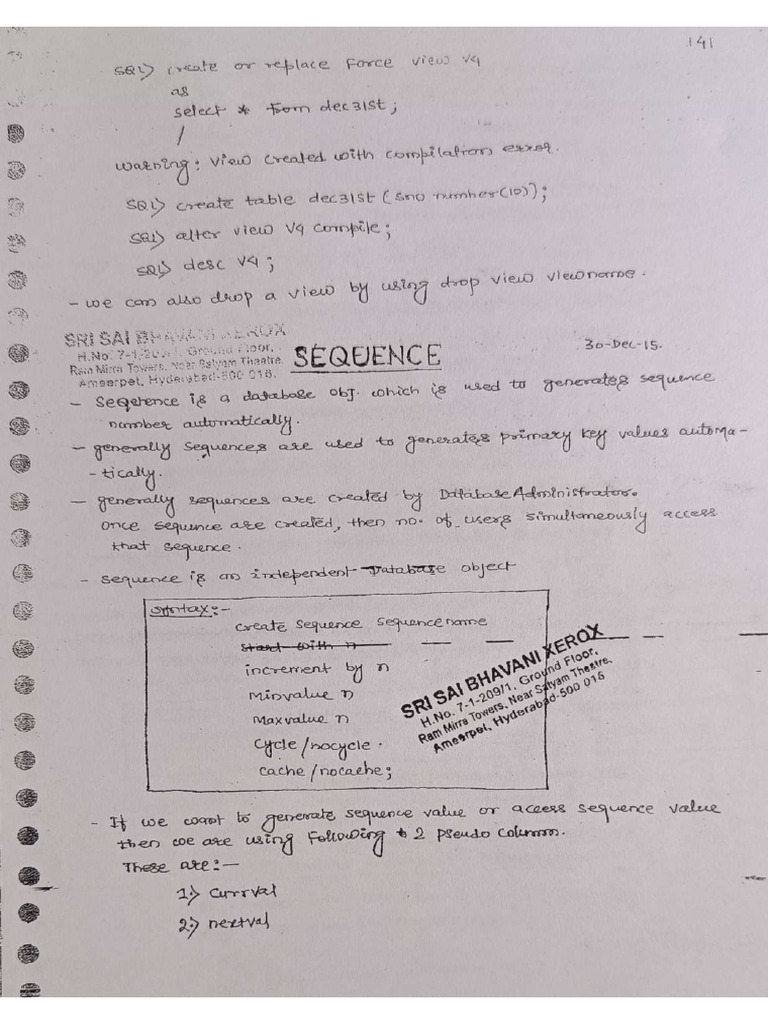 141
SQL> create or replace Force view V4
as
select * from dec31st;
/
Warning: View created with compilation error.
SQL> create table dec31st (sno number(10));
SQL> alter view V4 compile;
SQL> desc V4;
- we can also drop a view by using drop view viewname.
SRI SAI BHAVANI XEROX
H.No. 7-1-209/1, Ground Floor,
Ram Mirra Towers, Near Satyam Theatre,
Ameerpet, Hyderabad-500 016.
SEQUENCE
30-Dec-15.
- Sequence is a database obj. which is used to generates sequence
number automatically.
- generally sequences are used to generates primary key values automa-
- tically.
- generally sequences are created by Database Administrator.
once sequence are created, then no. of users simultaneously access
that sequence.
- sequence is an independent Database object
Syntax:-
create sequence sequencename
Start with n
increment by n
Minvalue n
Maxvalue n
Cycle/nocycle.
cache/nocache;
SRI SAI BHAVANI XEROX
H.No. 7-1-209/1, Ground Floor,
Ram Mirra Towers, Near Satyam Theatre,
Ameerpet, Hyderabad-500 016
- If we want to generate sequence value or access sequence value
then we are using following 2 pseudo column.
These are:-
1.> currval
2.> nextval